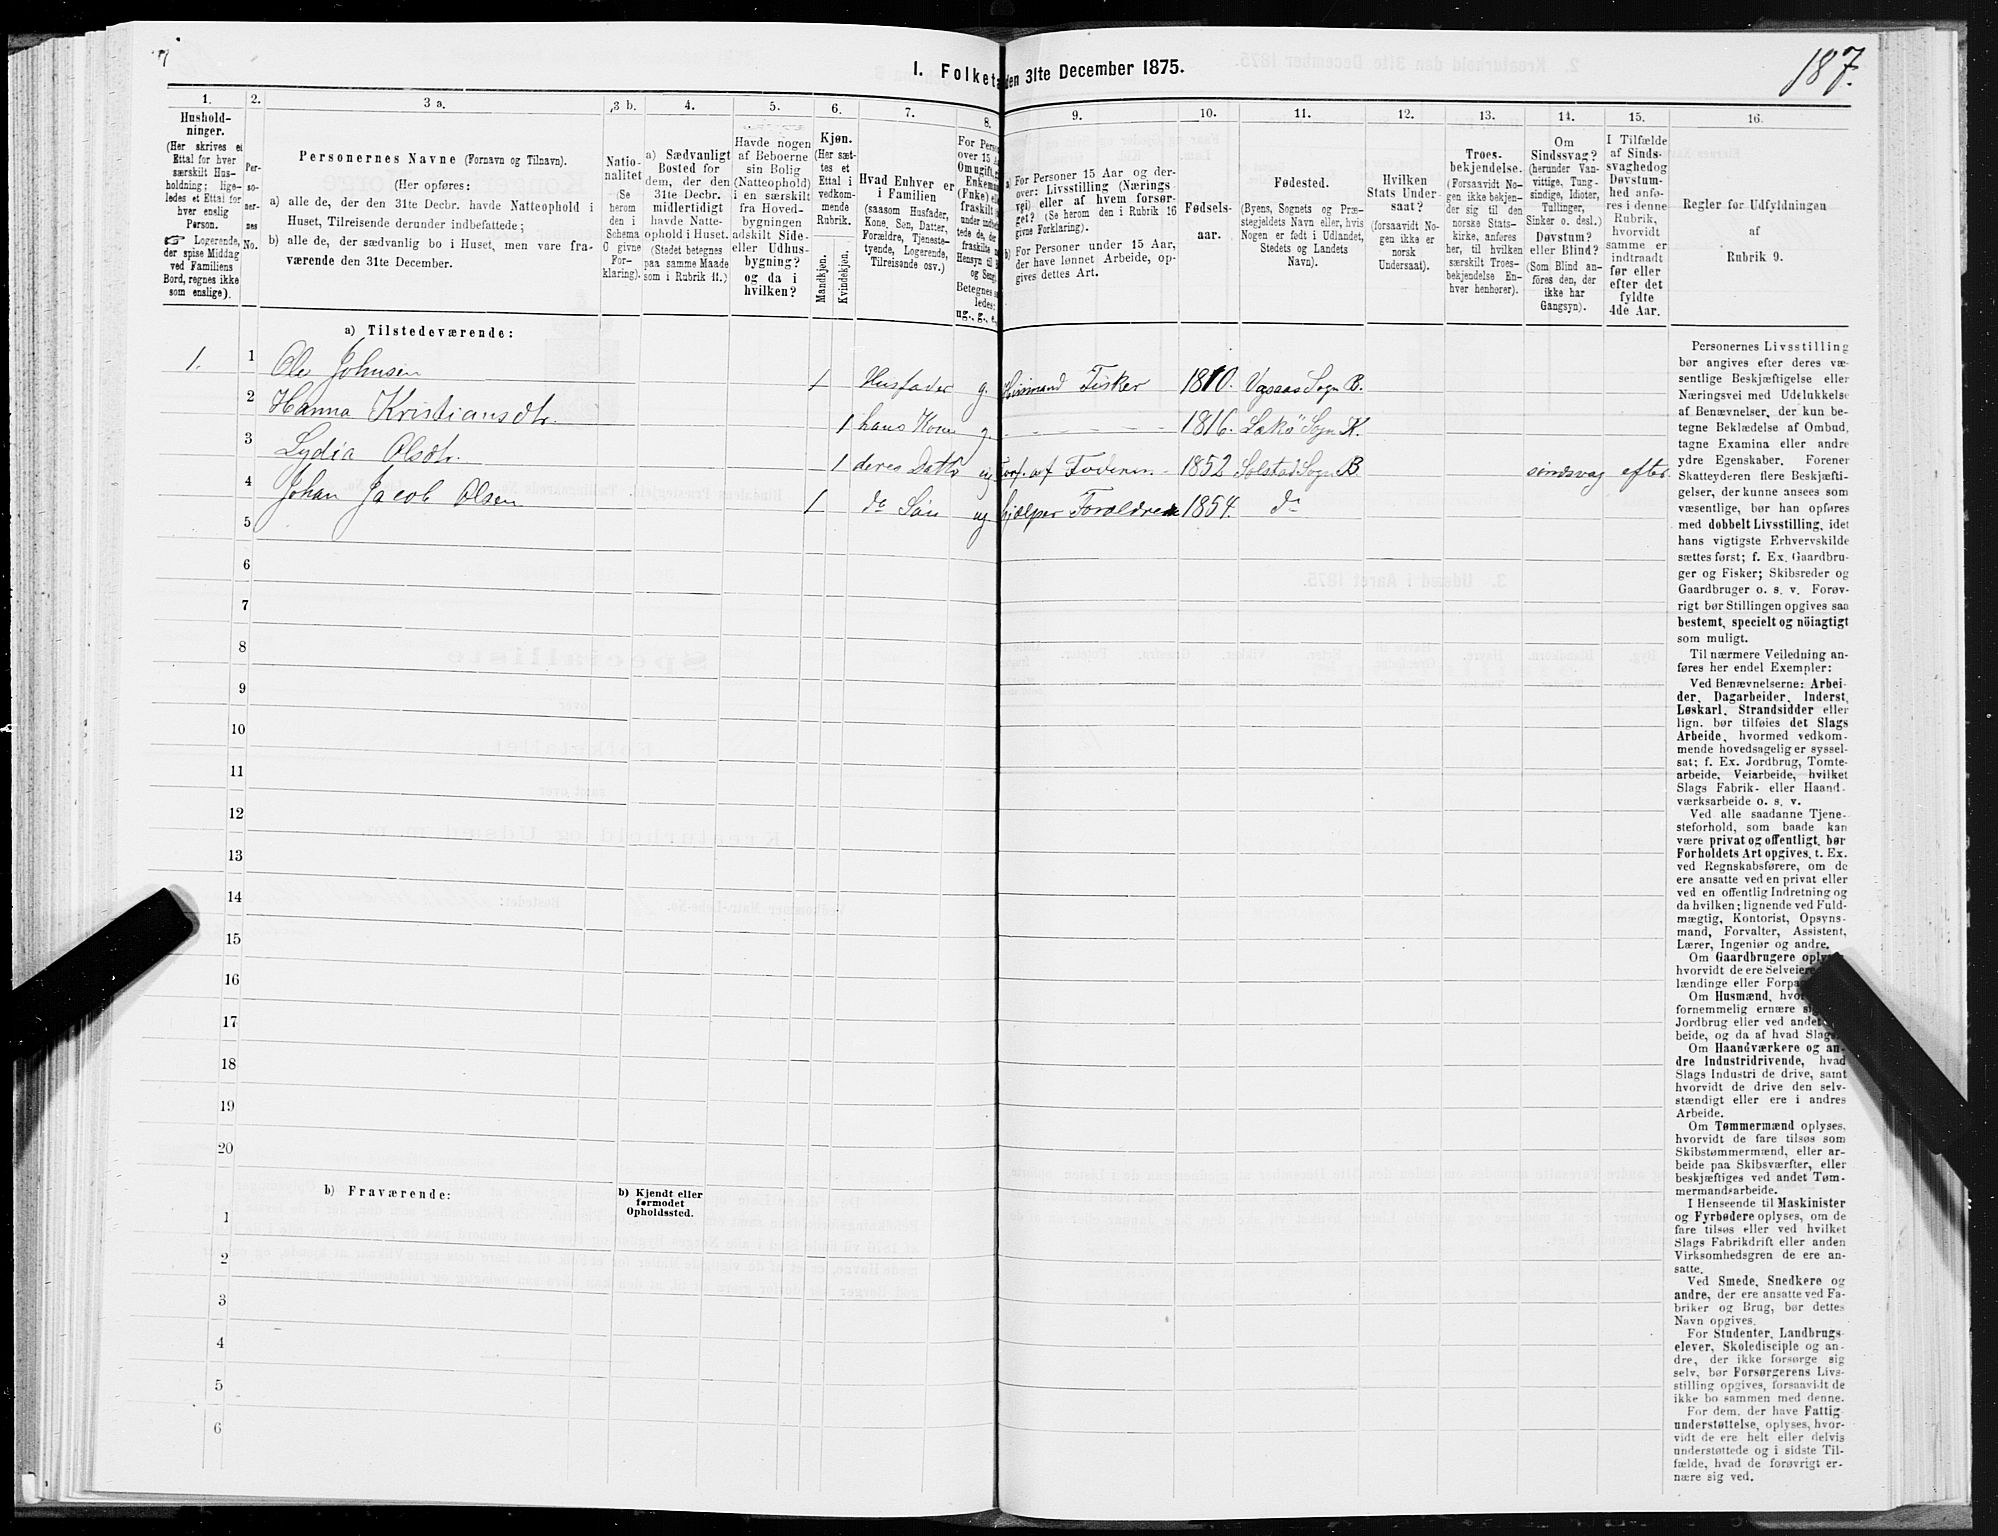 187.
1. Folketa den 31te December 1875.
1.
Hushold-
ninger.
(Her skrives et
Ettal for hver
særskilt Hus-
holdning; lige-
ledes et Ettal for
hver enslig
Person.
☞ Logerende,
der spise Middag
ved Familiens
Bord, regnes ikke
som enslige).
2.
Per-
so-
ner-
nes
No.
3 a.
Personernes Navne (Fornavn og Tilnavn).
(Her opføres:
a) alle de, der den 31te Decbr. havde Natteophold i
Huset, Tilreisende derunder indbefattede;
b) alle de, der sædvanlig bo i Huset, men vare fra-
værende den 31te December.
3 b.
Natio-
nalitet
(Se
herom
den i
Schema
C givne
For-
klaring).
4.
a) Sædvanligt
Bosted for
dem, der den
31te Decbr.
midlertidigt
havde Natte-
ophold i Huset.
(Stedet betegnes
paa samme Maade
som i Rubrik 11.)
5.
Havde nogen
af Beboerne
sin Bolig
(Natteophold)
i en særskilt
fra Hoved-
bygningen
adskilt Side-
eller Udhus-
bygning?
og da i
hvilken?
6.
Kjøn.
(Her sæt-
tes et
Ettal i
vedkom-
mende
Rubrik.
Mandkjøn.
Kvindekjøn.
7.
Hvad Enhver er
i Familien
(saasom Husfader,
Kone, Søn, Datter,
Forældre, Tjeneste-
tyende, Logerende,
Tilreisende osv.).
8.
For Perso
over 15 A
Om ugift, g
Enkema
(Enke) el
fraskilt
ug., g., e.
9.
a) For Personer 15 Aar og der-
over: Livsstilling (Nærings-
vei) eller af hvem forsør-
get? (Se herom den i Rubrik 16
givne Forklaring).
b) For Personer under 15 Aar,
der have lønnet Arbeide, op-
gives dettes Art.
10.
Fødsels-
aar.
11.
Fødested.
(Byens, Sognets og Præ-
stegjeldets Navn eller, hvis
Nogen er født i Udlandet,
Stedets og Landets
Navn).
12.
Hvilken
Stats Under-
saat?
(forsaavidt No-
gen ikke er
norsk
Undersaat).
13.
Troes-
bekjendelse.
(Forsaavidt No-
gen ikke bekjen-
der sig til den
norske Stats-
kirke, anføres
her, til hvilken
særskilt Troes-
bekjendelse En-
hver henhører).
14.
Om
Sindssvag?
(herunder Van-
vittige, Tung-
sindige, Idioter,
Tullinger,
Sinker o. desl.)
Døvstum?
eller Blind?
(Som Blind an-
føres den, der
ikke har
Gangsyn).
15.
I Tilfælde
af Sinds-
svaghed og
Døvstum-
hed anfø-
res i denne
Rubrik,
hvorvidt
samme er
indtraadt
før eller
efter det
fyldte
4de Aar.
16.
Regler for Udfyldningen
af
Rubrik 9.
a) Tilstedeværende:
1. 1 Ole Johnsen 1 Husfader g. Huusmand Fisker 1810. Vegaas Sogn B.
2 Hanna Kristiansdtr. 1 hans Kone g. 1816. Sogn K.
3 Lydia Olsdtr. 1 deres Datter ug Fors. af Faderen 1852 Solstad Sogn B sindsvag efter
4 Johan Jacob Olsen 1 do Søn ug hjælper Forældrene 1854. do
5
6
7
8
9
10
11
12
13
14
15
16
17
18
19
20
b) Fraværende:
b) Kjendt eller
formodet
Opholdssted.
1
2
3
4
5
6
Personernes Livsstilling
bør angives efter deres væ-
sentlige Beskjæftigelse eller
Næringsvei med Udelukkelse
af Benævnelser, der kun be-
tegne Beklædelse af Ombud,
tagne Examina eller andre
ydre Egenskaber. Forener
Skatteyderen flere Beskjæfti-
gelser, der kunne ansees som
væsentlige, bør han opføres
med dobbelt Livsstilling, idet
hans vigtigste Erhvervskilde
sættes først; f. Ex. Gaardbru-
ger og Fisker; Skibsreder og
Gaardbruger o. s. v. Forøv-
rigt bør Stillingen opgives saa
bestemt, specielt og nöiagtigt
som muligt.
Til nærmere Veiledning an-
føres her endel Exempler:
Ved Benævnelserne: Arbei-
der, Dagarbeider, Inderst,
Løskarl, Strandsidder eller
lign. bør tilføies det Slags
Arbeide, hvormed vedkom-
mende hovedsagelig er syssel-
sat; f. Ex. Jordbrug, Tomte-
arbeide, Veiarbeide, hvilket
Slags Fabrik- eller Haand-
værksarbeide o. s. v.
Ved alle saadanne Tjene-
steforhold, som baade kan
være privat og offentligt, bør
Forholdets Art opgives, t. Ex.
ved Regnskabsførere, om de
ere ansatte ved en privat eller
ved en offentlig Indretning og
da hvilken; lignende ved Fuld-
mægtig, Kontorist, Opsyns-
mand, Forvalter, Assistent,
Lærer, Ingeniør og andre.
Om Gaardbrugere oplyses
hvorvidt de ere Selveiere
lændinge eller Forpa
Om Husmænd, hvo
fornemmelig ernære si
Jordbrug eller ved andet
beide, og da af hvad Slags
Om Haandværkere og an-
dre Industridrivende, hvad
Slags Industri de drive, samt
hvorvidt de drive den selv-
stændigt eller ere i andres
Arbeide.
Om Tømmermænd oplyses,
hvorvidt de fare tilsøs som
Skibstømmermænd, eller ar-
beide paa Skibsværfter, eller
beskjæftiges ved andet Tøm-
mermandsarbeide.
I Henseende til Maskinister
og Fyrbødere oplyses, om de
fare tilsøs eller ved hvilket
Slags Fabrikdrift eller anden
Virksomhedsgren de ere an-
satte.
Ved Smede, Snedkere og
andre, der ere ansatte ved Fa-
briker og Brug, bør dettes
Navn opgives.
For Studenter, Landbrugs-
elever, Skoledisciple og an-
dre, der ikke forsørge sig
selv, bør Forsørgerens Livs-
stilling opgives, forsaavidt de
ikke bo sammen med denne.
For dem, der have Fattig-
understøttelse, oplyses, hvor-
vidt de ere helt eller delvis
understøttede og i sidste Til-
fælde, hvad de forøvrigt er-
nære sig ved.